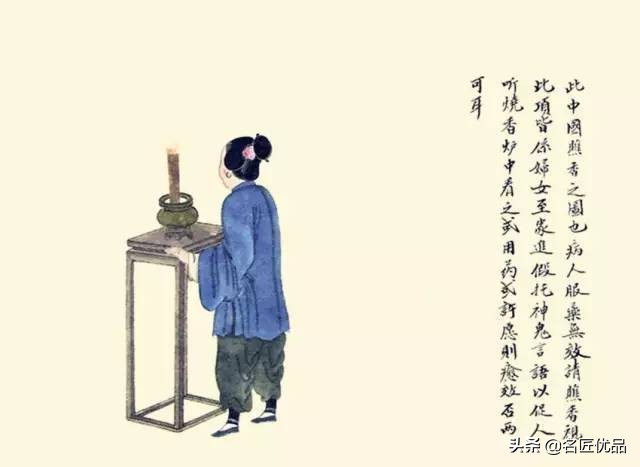 此中國瞧香之圖也病人服藥無效請瞧香視
此項皆係婦女至家進假托神鬼言語以促人
听燒香炉中看之或用药或許愿則癒效否两
可耳
头条 @名匠优品